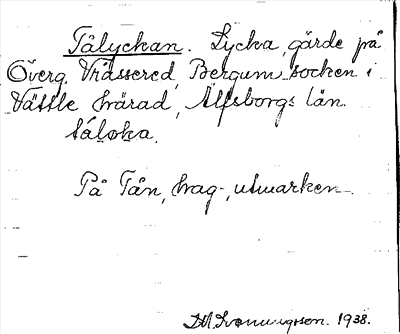 Tålyckan. Lycka, gärde på
Överg. Vrässered, Bergum socken i
Vättle härad, Älfsborgs län.
På Tån, hag-, utmarken
1938.